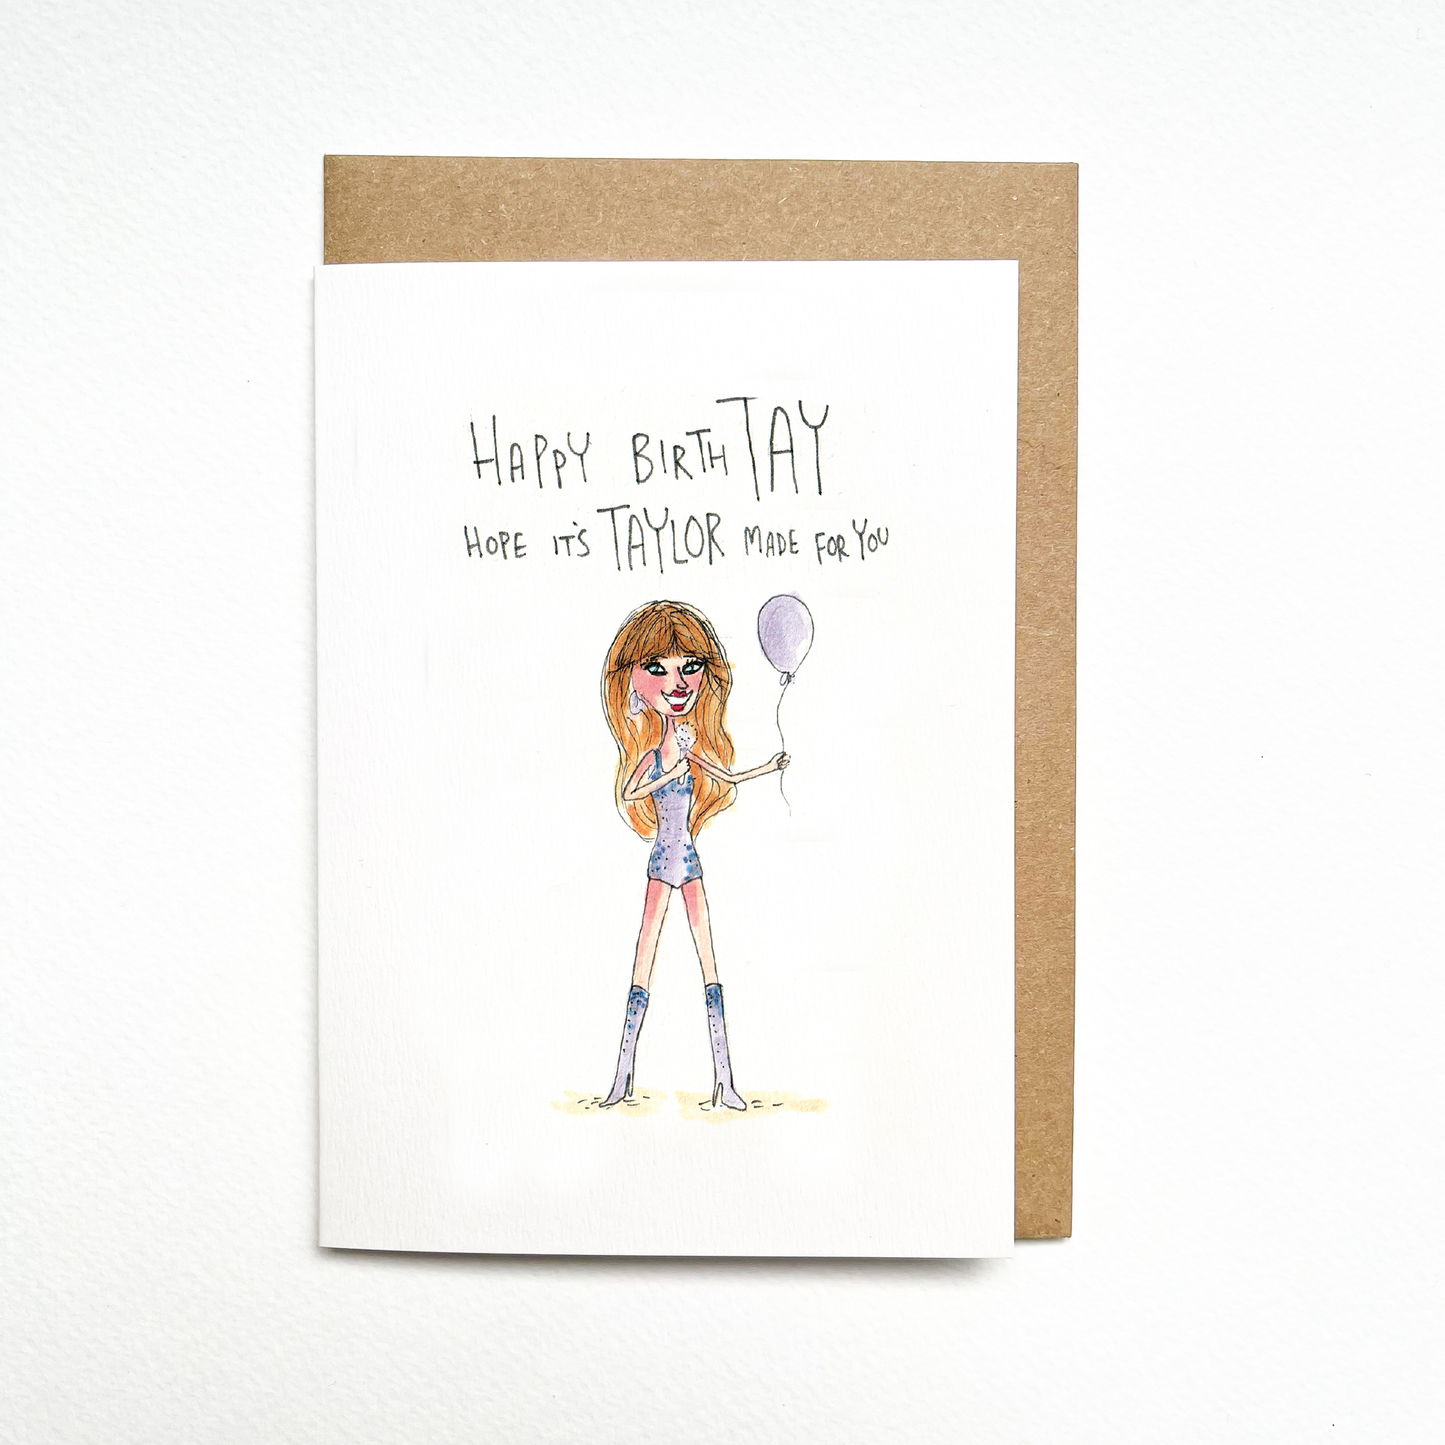 HAPPY BIRTHTAY
HOPE IT'S TAYLOR MADE FOR YOU